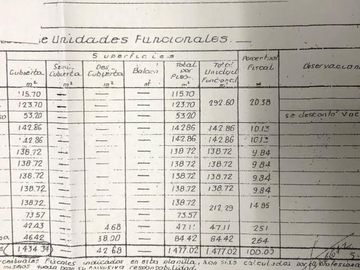 e Unidades Funcionales.
Superficies
Cubierta m² Semi Cubierta m² Des Cubierta m² Balcón m² Total por Piso m² Total Unidad Funcional m² Porcentual Fiscal Observacion
115.70 — — — 115.70
123.70 — — — 123.70 292.60 20.38
53.20 — — — 53.20 se descontó
142.86 — — — 142.86 142.86 10.13
142.86 — — — 142.86 142.86 10.13
138.72 — — — 138.72 138.72 9.84
138.72 — — — 138.72 138.72 9.84
138.72 — — — 138.72 138.72 9.84
138.72 — — — 138.72 138.72 9.84
138.72 — — — 138.72 212.29 14.86
73.57 — — — 73.57
42.43 — 4.68 — 47.11 47.11 2.51
46.42 — 38.00 — 84.42 84.42 2.64
1.434.34 — 42.68 — 1.477.02 1.477.02 100.00
Porcentuales Fiscales indicados en esta planilla, han sido calculados por el profesional